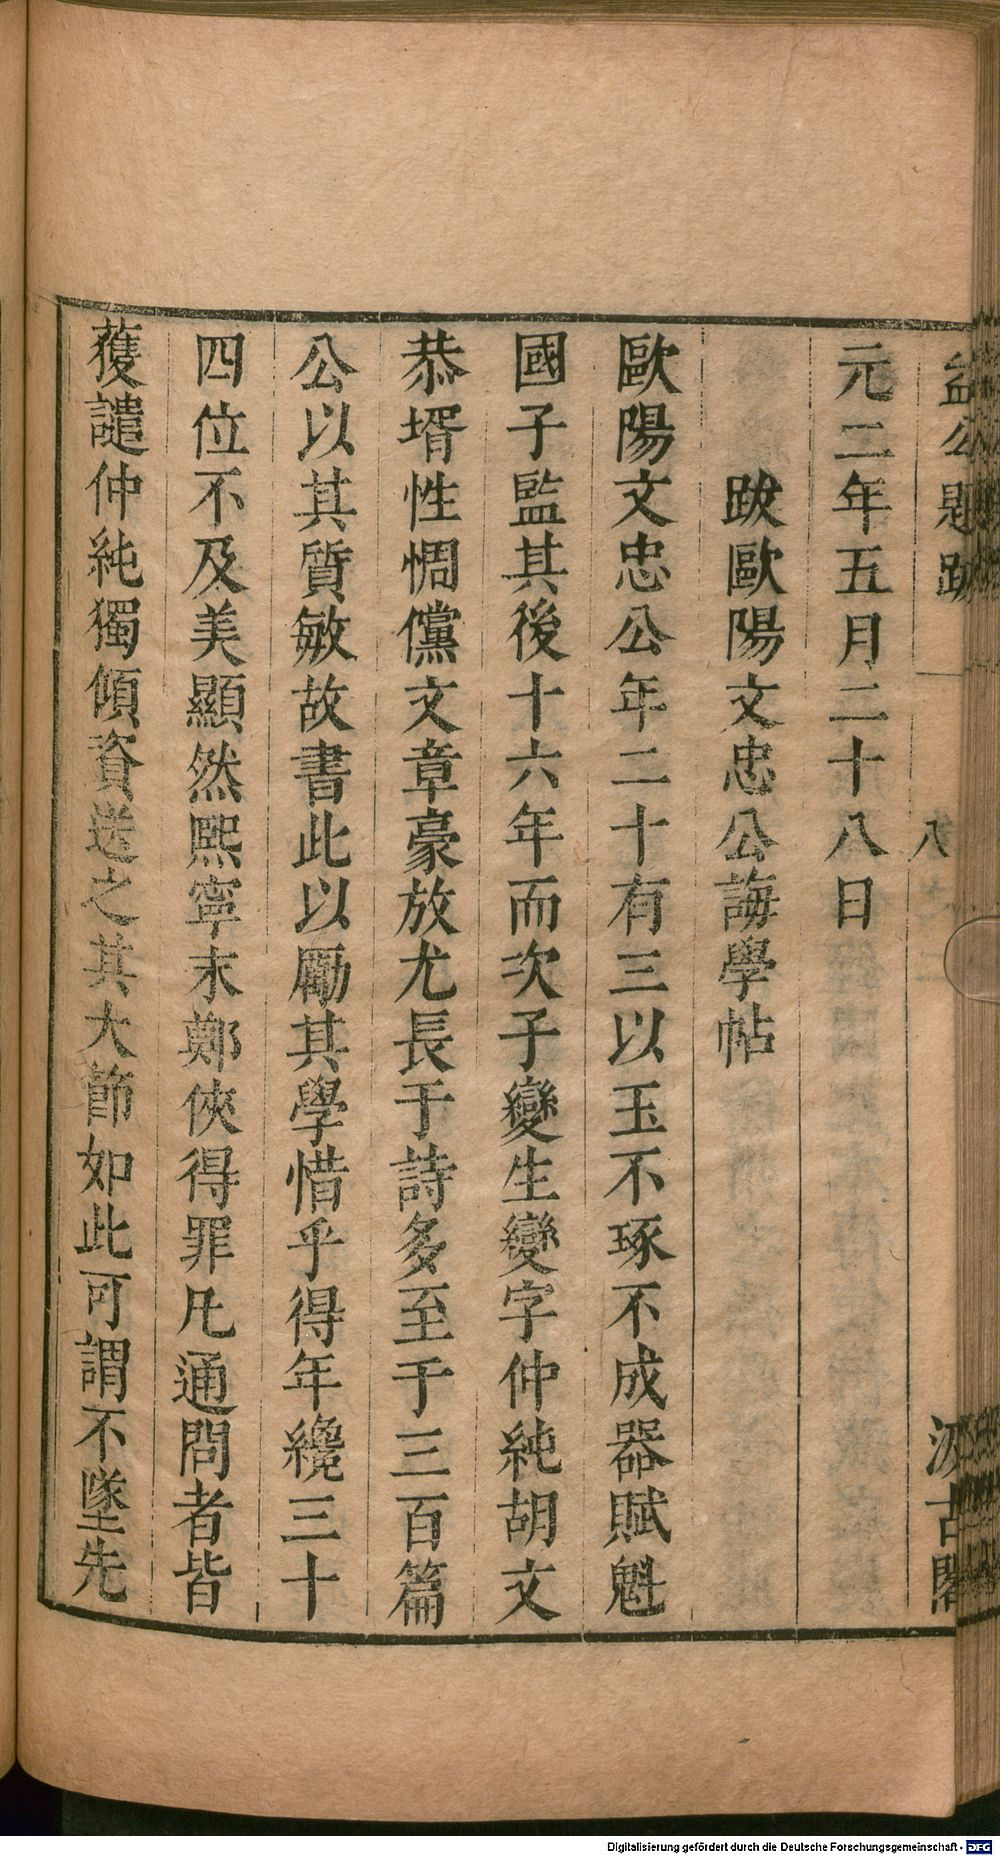 益公題跋 八 汲古閣
元二年五月二十八日
跋歐陽文忠公誨學帖
歐陽文忠公年二十有三以玉不琢不成器賦魁
國子監其後十六年而次子變生變字仲純胡文
恭壻性倜儻文章豪放尤長于詩多至于三百篇
公以其質敏故書此以勵其學惜乎得年纔三十
四位不及美顯然熙寧末鄭俠得罪凡通問者皆
獲譴仲純獨傾資送之其大節如此可謂不墜先
Digitalisierung gefördert durch die Deutsche Forschungsgemeinschaft - DFG